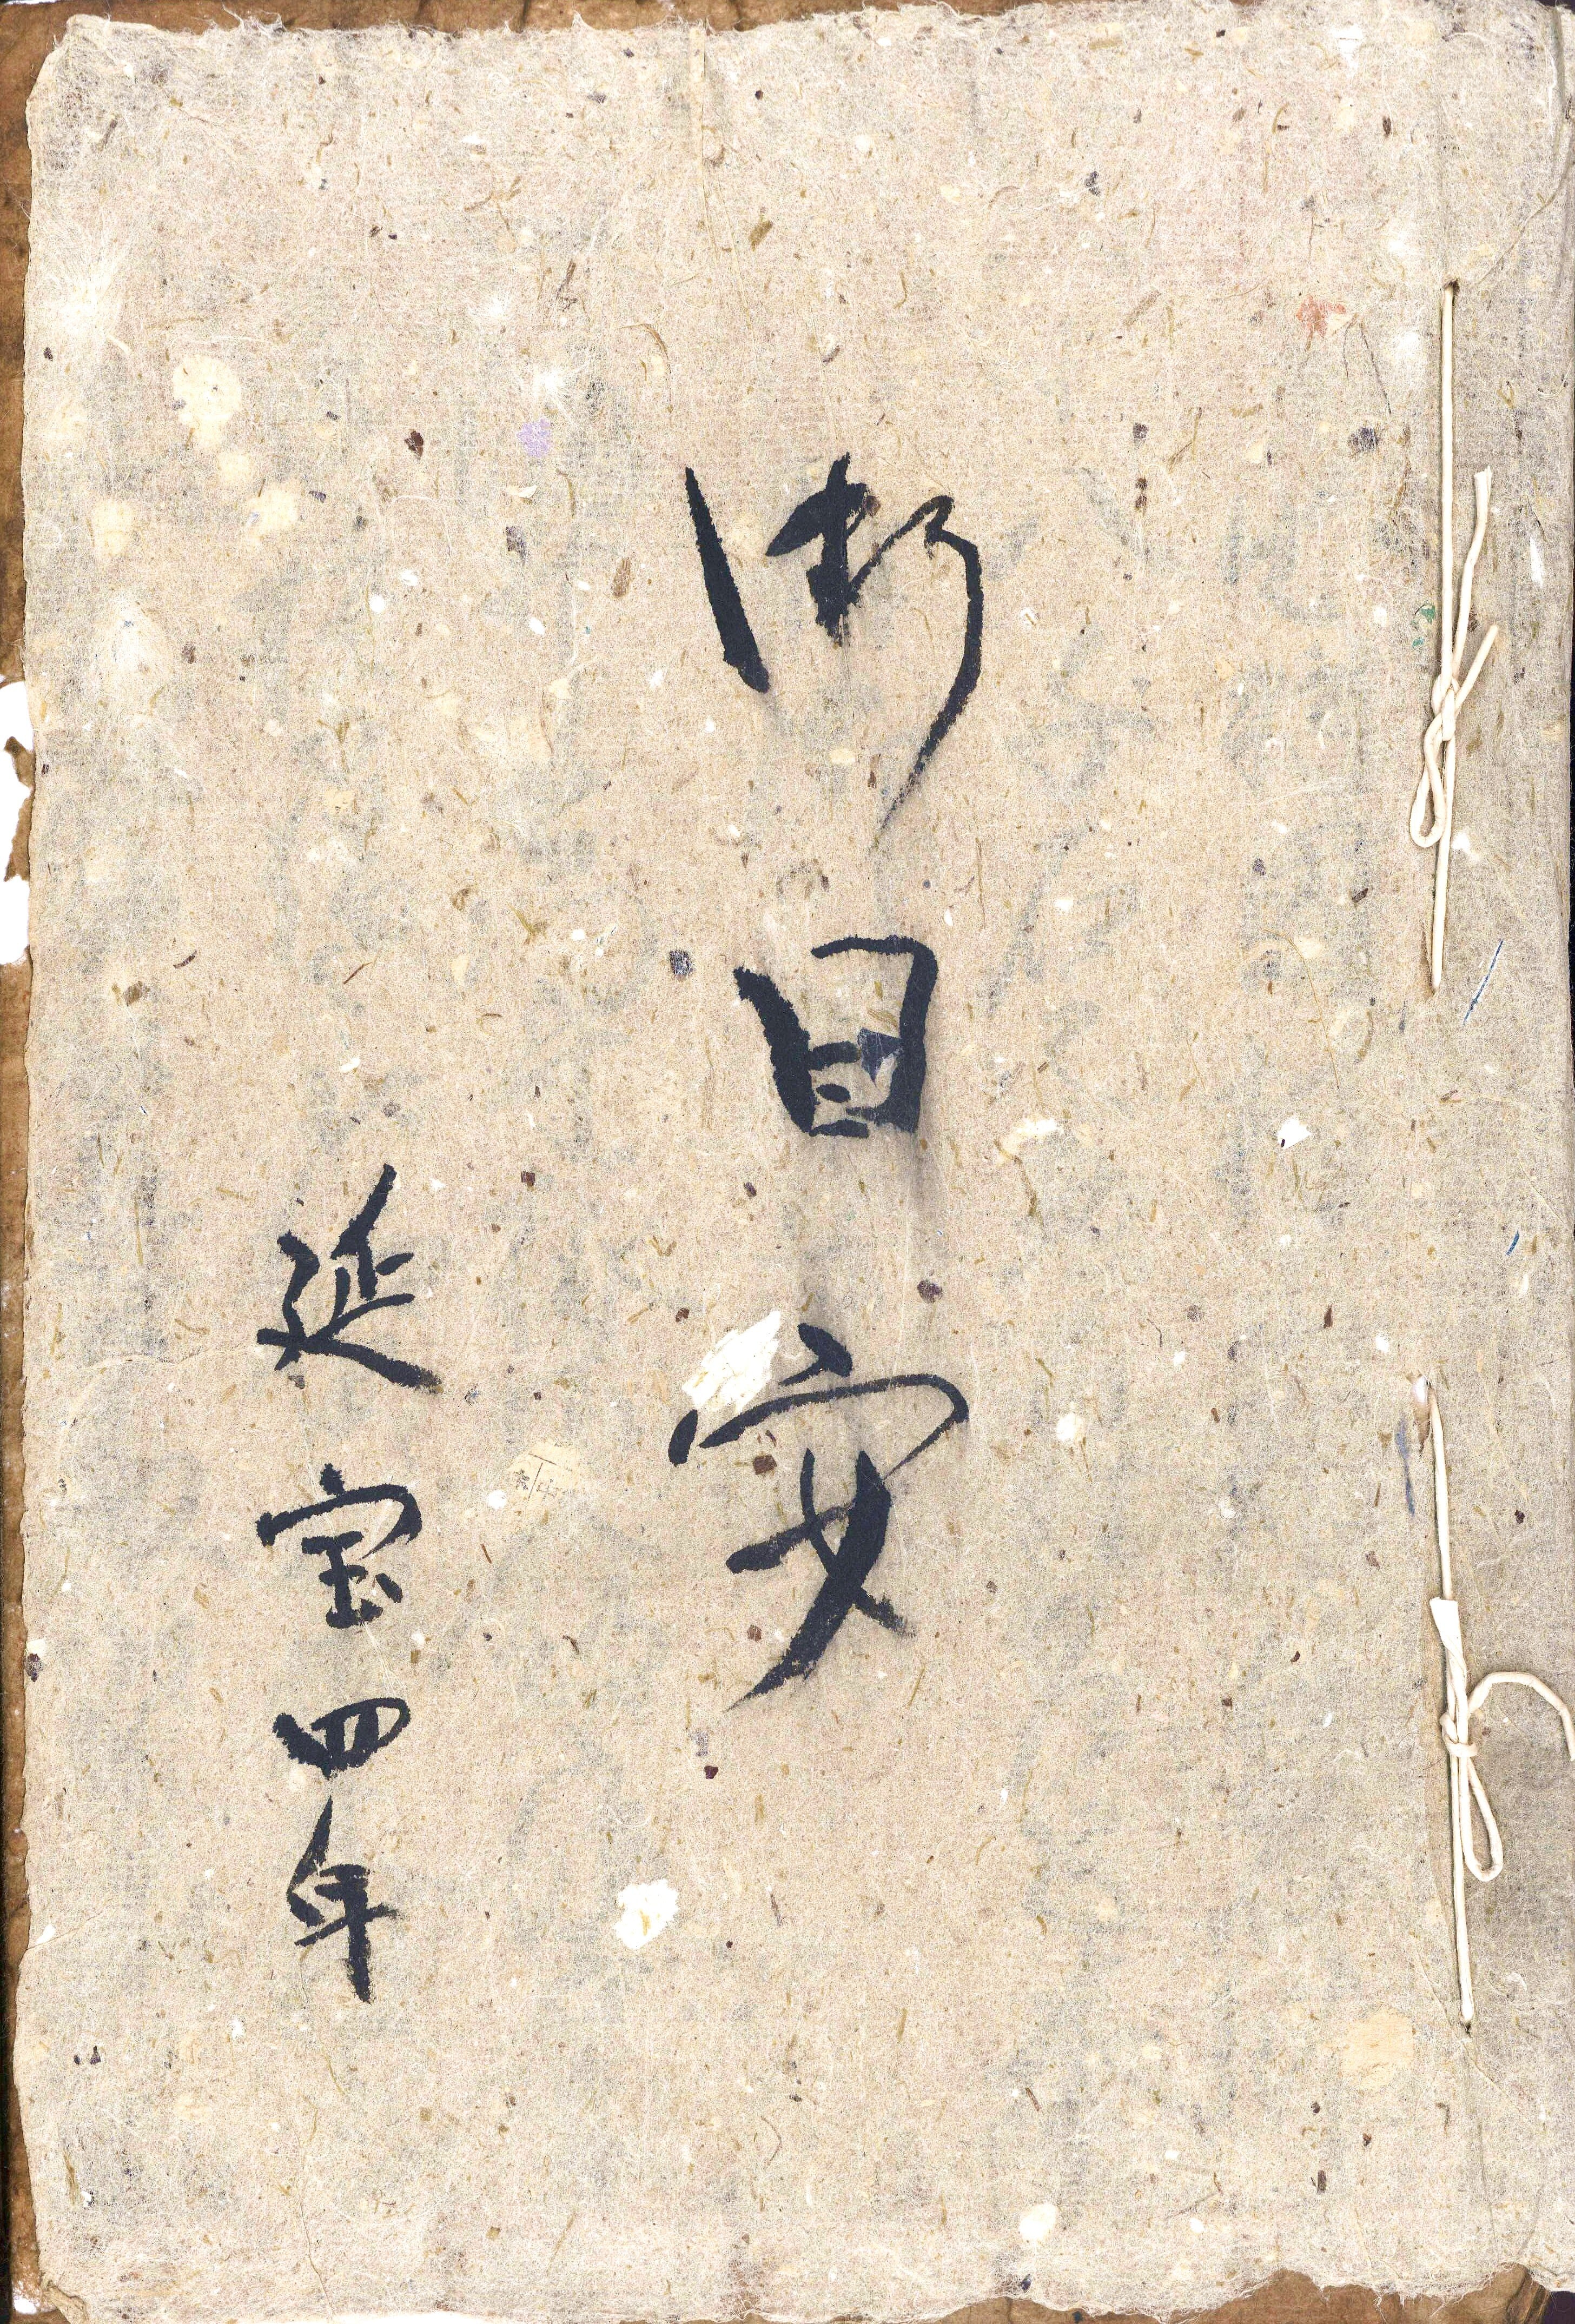 御目安
延宝四年